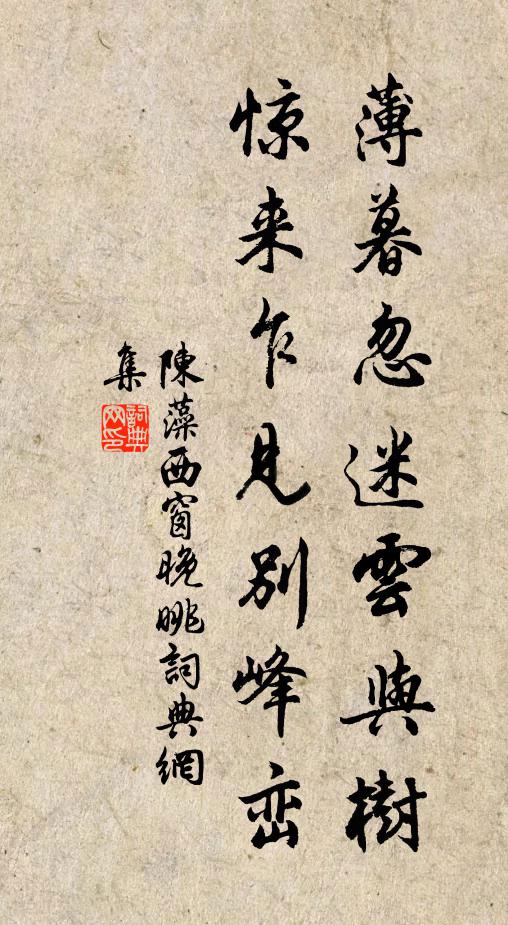 薄暮忽迷雲與樹
惊来乍見别峰峦
陳藻西窗晚眺詞典網
集
詞典
网印